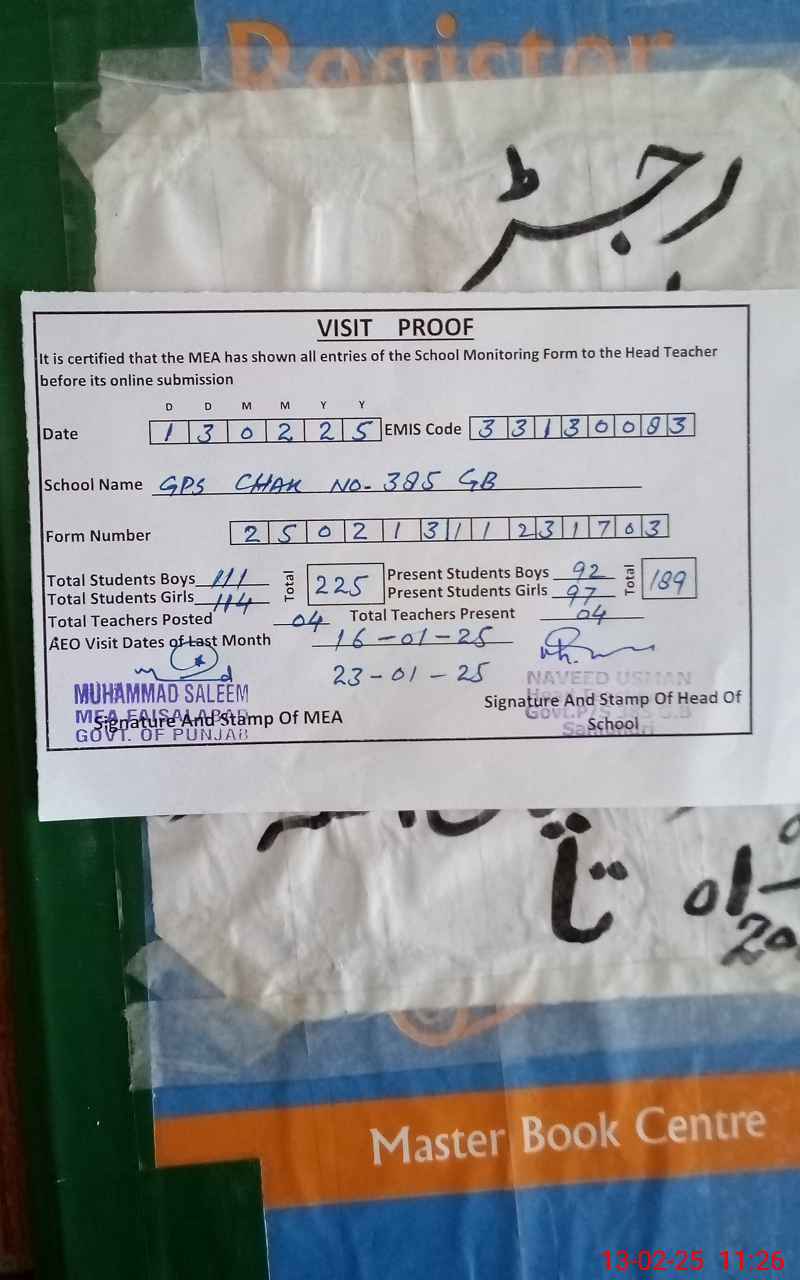 Register
رجٹر
VISIT PROOF
It is certified that the MEA has shown all entries of the School Monitoring Form to the Head Teacher
before its online submission
D D M M Y Y
Date 1 3 0 2 2 5 EMIS Code 3 3 1 3 0 0 8 3
School Name GPS CHAK NO- 385 GB
Form Number 2 5 0 2 1 3 1 1 2 3 1 7 0 3
Total Students Boys 111 Total 225 Present Students Boys 92 Total 189
Total Students Girls 114 Present Students Girls 97
Total Teachers Posted 04 Total Teachers Present 04
AEO Visit Dates of Last Month 16-01-25
23-01-25
MUHAMMAD SALEEM
MEA FAISALABAD
GOVT. OF PUNJAB
Signature And Stamp Of MEA
NAVEED USMAN
Signature And Stamp Of Head Of
School
تا
Master Book Centre
13-02-25 11:26